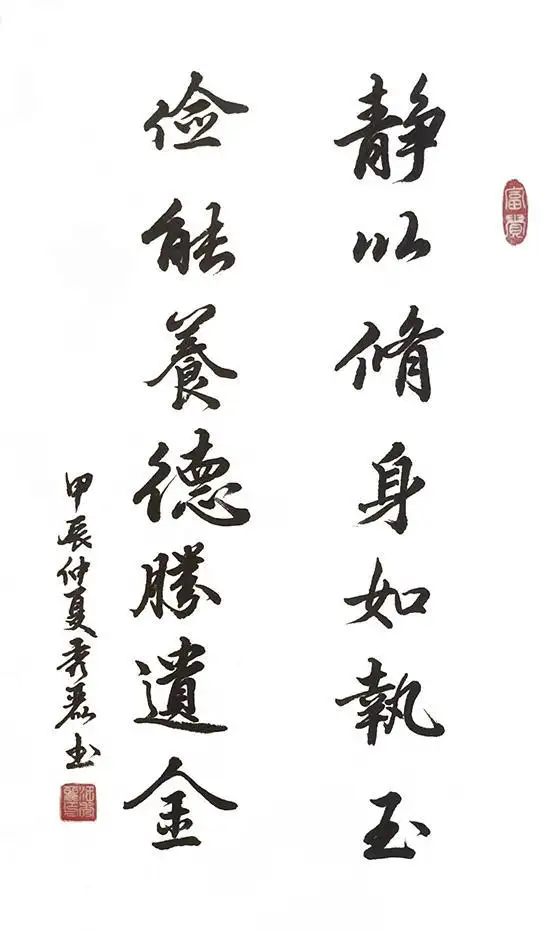 静以脩身如執玉
俭能養德勝遺金
甲辰仲夏秀磊书
富貴